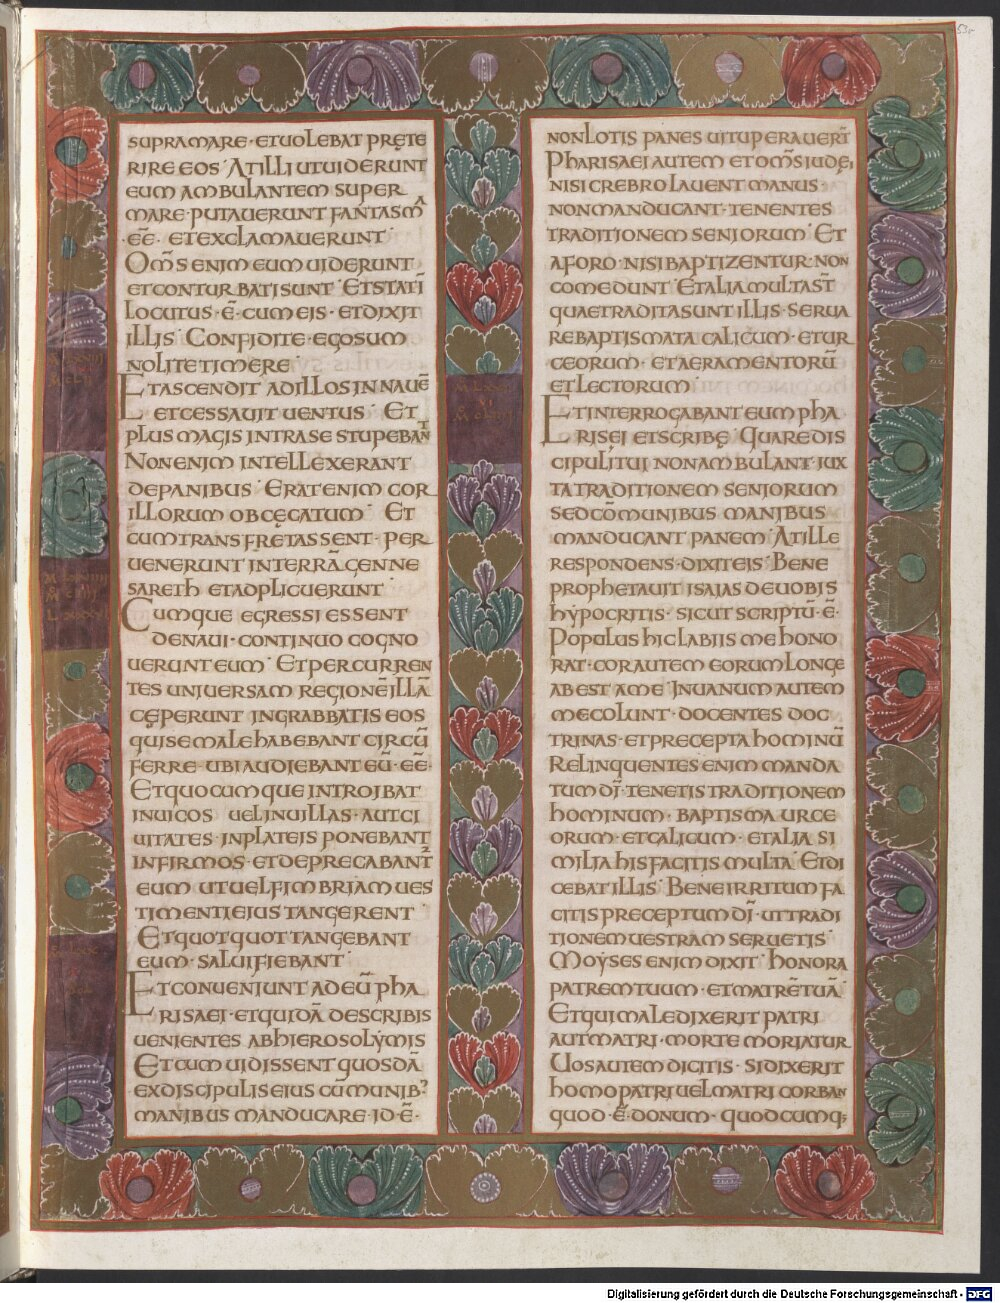 53r
SUPRA MARE · ET UOLEBAT PRĘTE
RIRE EOS · AT ILLI UT UIDERUNT
EUM AMBULANTEM SUPER
MARE · PUTAUERUNT FANTASMA
·EE̅· ET EXCLAMAUERUNT ·
OM̅S ENIM EUM UIDERUNT
ET CONTURBATI SUNT · ET STATI̅
LOCUTUS · E̅ · CUM EIS · ET DIXIT
ILLIS · CONFIDITE · EGO SUM
NOLITE TIMERE ·
ET ASCENDIT AD ILLOS IN NAUE̅
ET CESSAUIT UENTUS · ET
PLUS MAGIS INTRA SE STUPEBANT
NON ENIM INTELLEXERANT
DE PANIBUS · ERAT ENIM COR
ILLORUM OBCĘCATUM · ET
CUM TRANSFRETASSENT · PER
UENERUNT IN TERRA̅ GENNE
SARETH ET ADPLICUERUNT
CUMQUE EGRESSI ESSENT
DE NAUI · CONTINUO COGNO
UERUNT EUM · ET PERCURREN
TES UNIUERSAM REGIONE̅ ILLA̅
CĘPERUNT IN GRABBATIS EOS
QUI SE MALE HABEBANT CIRCU̅
FERRE · UBI AUDIEBANT EU̅ · EE̅ ·
ET QUOCUMQUE INTROIBAT
IN UICOS UEL IN UILLAS · AUT CI
UITATES · IN PLATEIS PONEBANT
INFIRMOS · ET DEPRECABANT᷒
EUM UT UEL FIMBRIAM UES
TIMENTI EIUS TANGERENT
ET QUOTQUOT TANGEBANT
EUM · SALUI FIEBANT ·
ET CONUENIUNT AD EU̅ PHA
RISAEI · ET QUIDA̅ DE SCRIBIS
UENIENTES AB HIEROSOLYMIS
ET CUM UIDISSENT QUOSDA̅
EX DISCIPULIS EIUS CO̅MUNIB᷒
MANIBUS MANDUCARE · ID · E̅ ·
NON LOTIS PANES UITUPERAUERT̅
PHARISAEI AUTEM ET OM̅S IUDĘI
NISI CREBRO LAUENT MANUS ·
NON MANDUCANT · TENENTES
TRADITIONEM SENIORUM · ET
A FORO · NISI BAPTIZENTUR · NON
COMEDUNT · ET ALIA MULTA ST̅
QUAE TRADITA SUNT ILLIS · SERUA
RE BAPTISMATA CALICUM · ET UR
CEORUM · ET AERAMENTORU̅
ET LECTORUM ·
ET INTERROGABANT EUM PHA
RISEI ET SCRIBĘ · QUARE DIS
CIPULI TUI NON AMBULANT · IUX
TA TRADITIONEM SENIORUM
SED CO̅MUNIBUS MANIBUS
MANDUCANT PANEM · AT ILLE
RESPONDENS · DIXIT EIS · BENE
PROPHETAUIT ISAIAS DE UOBIS
HYPOCRITIS · SICUT SCRIPTU̅ · E̅ ·
POPULUS HIC LABIIS ME HONO
RAT · COR AUTEM EORUM LONGE
ABEST A ME · IN UANUM AUTEM
ME COLUNT · DOCENTES DOC
TRINAS · ET PRECEPTA HOMINU̅
RELINQUENTES ENIM MANDA
TUM DI̅ · TENETIS TRADITIONEM
HOMINUM · BAPTISMA URCE
ORUM · ET CALICUM · ET ALIA SI
MILIA HIS FACITIS MULTA · ET DI
CEBAT ILLIS · BENE IRRITUM FA
CITIS PRECEPTUM DI̅ · UT TRADI
TIONEM UESTRAM SERUETIS
MOYSES ENIM DIXIT · HONORA
PATREM TUUM · ET MATRE̅ TUA̅
ET QUI MALEDIXERIT PATRI
AUT MATRI · MORTE MORIATUR
UOS AUTEM DICITIS · SI DIXERIT
HOMO PATRI UEL MATRI CORBAN
QUOD · E̅ · DONUM · QUODCUMQ;
Digitalisierung gefördert durch die Deutsche Forschungsgemeinschaft - DFG